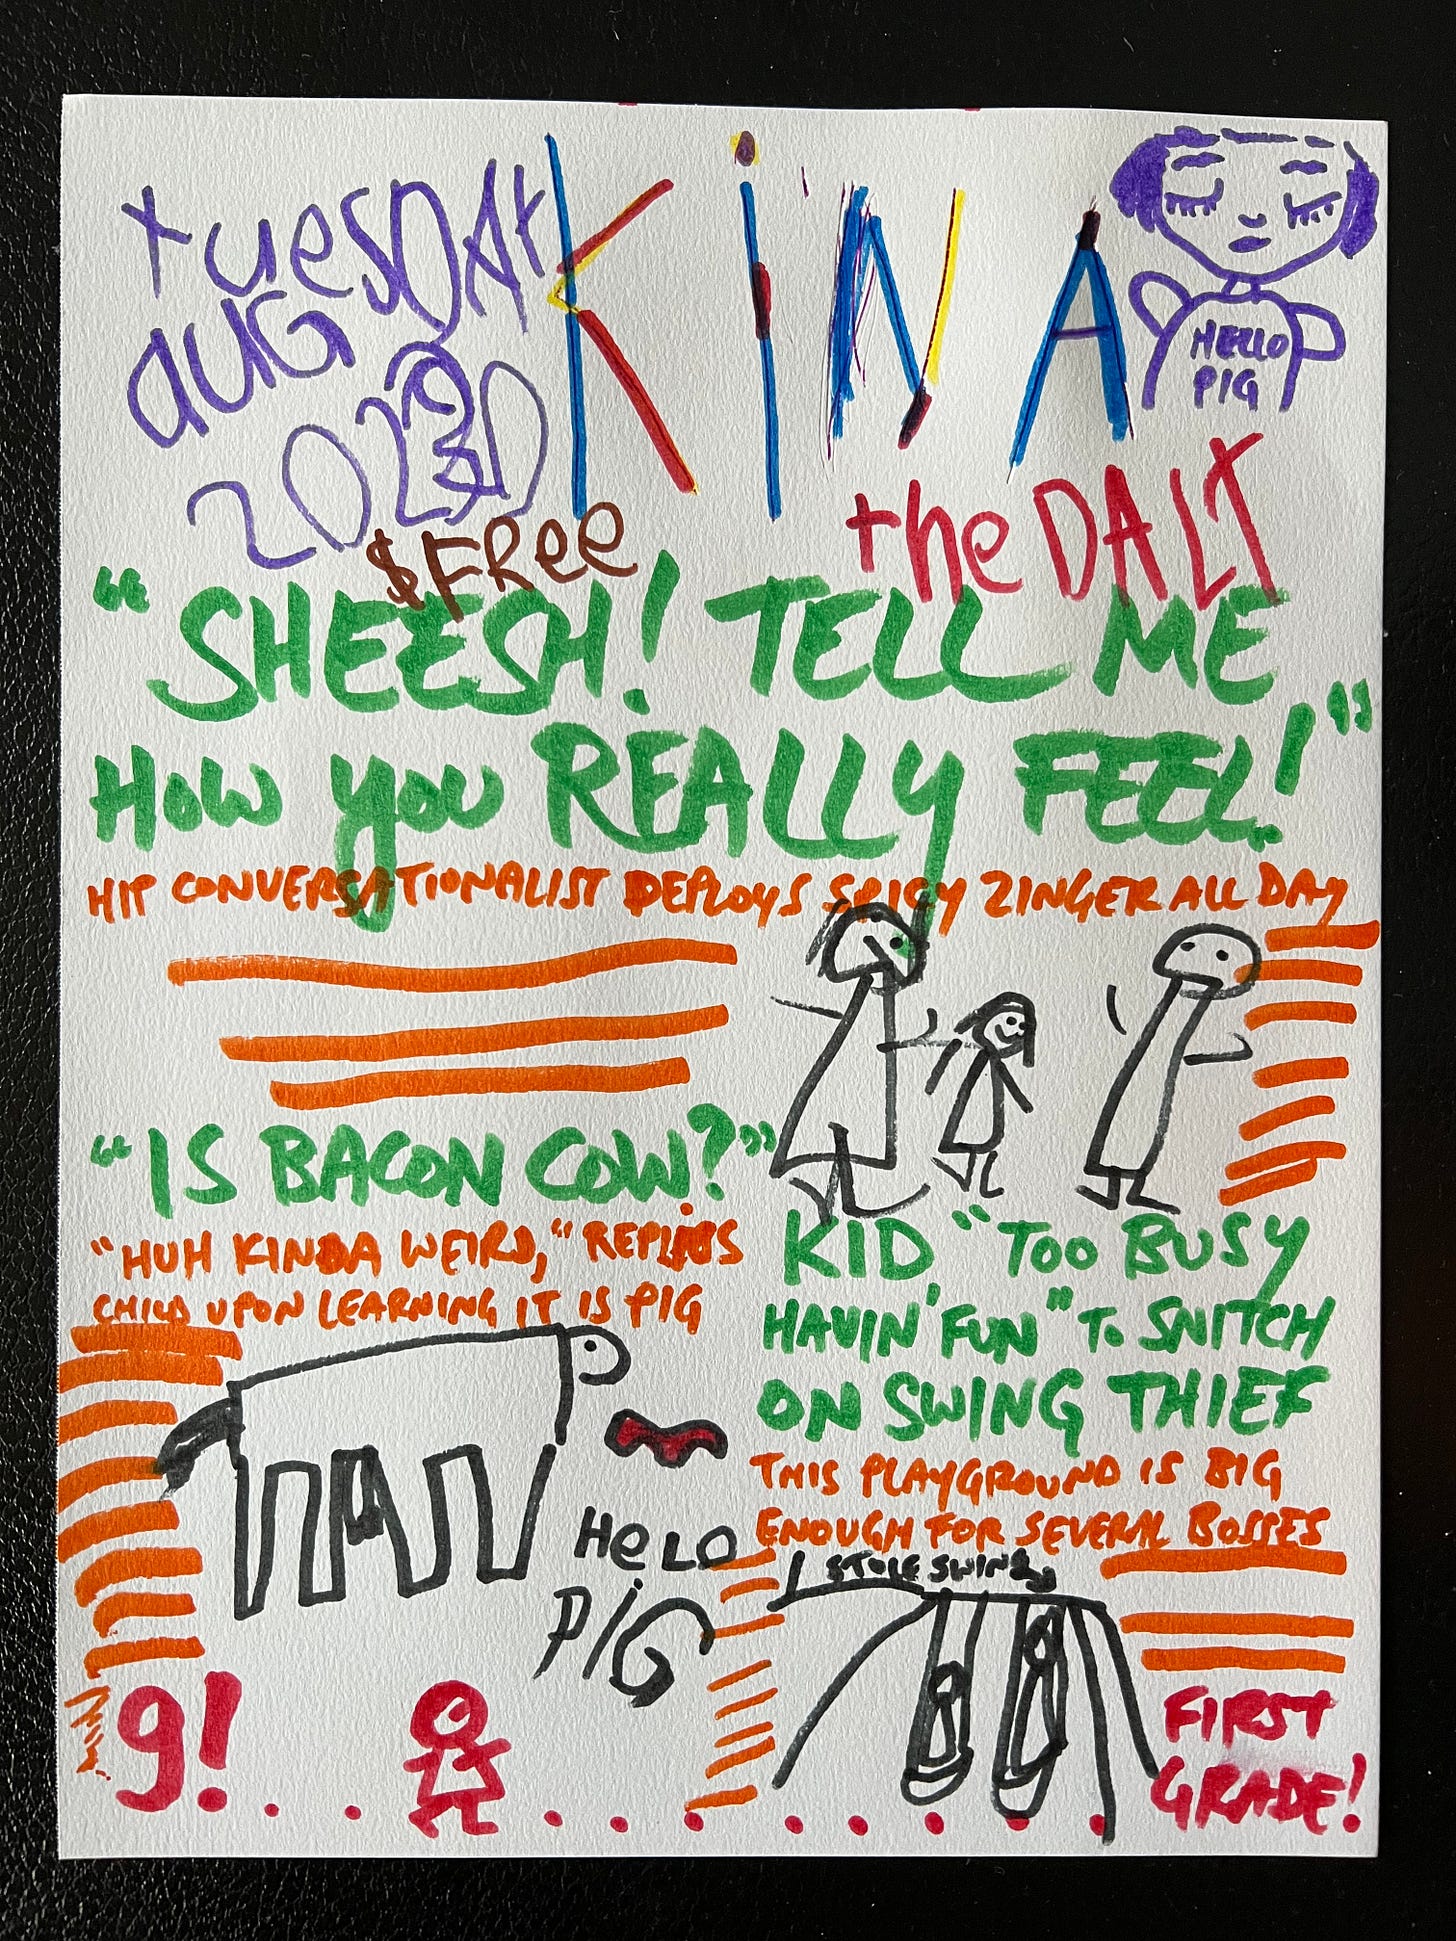 TUESDAY
KiNA
AUG 22
2023
HELLO
PIG
$FRee
the DALT
"SHEESH! TELL ME
HOW YOU REALLY FEEL!"
HIP CONVERSATIONALIST DEPLOYS SPICY ZINGER ALL DAY
"IS BACON COW?"
"HUH KINDA WEIRD," REPLIES
CHILD UPON LEARNING IT IS PIG
HeLO
PIG
KID, "TOO BUSY
HAVIN' FUN" TO SNITCH
ON SWING THIEF
THIS PLAYGROUND IS BIG
ENOUGH FOR SEVERAL BOSSES
I STOLE SWING
9!
FIRST
GRADE!